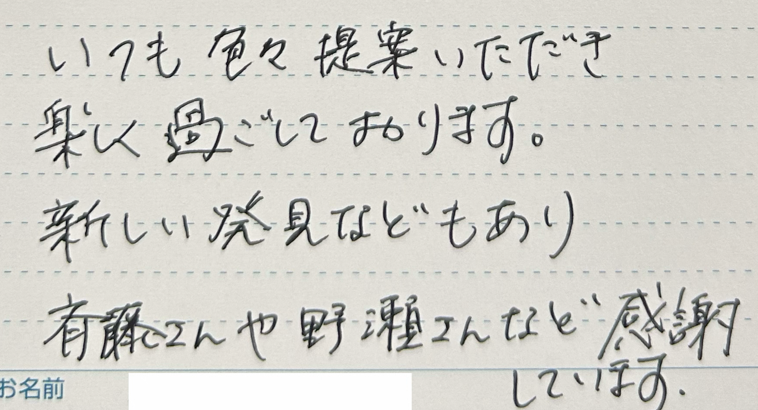 いつも色々提案いただき
楽しく過ごしております。
新しい発見などもあり
斉藤さんや野瀬さんなど感謝
しています.
お名前